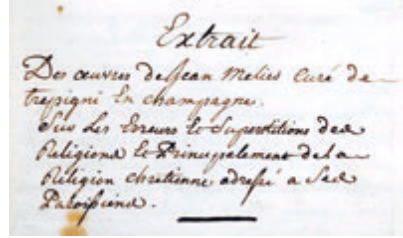 Extrait
Des œuvres de Jean Melies Curé de
trepigni En champagne.
Sur Les Erreurs Et Superstitions des
Religions Et Principalement de la
Religion chretienne adressé a Ses
Paroissiens.